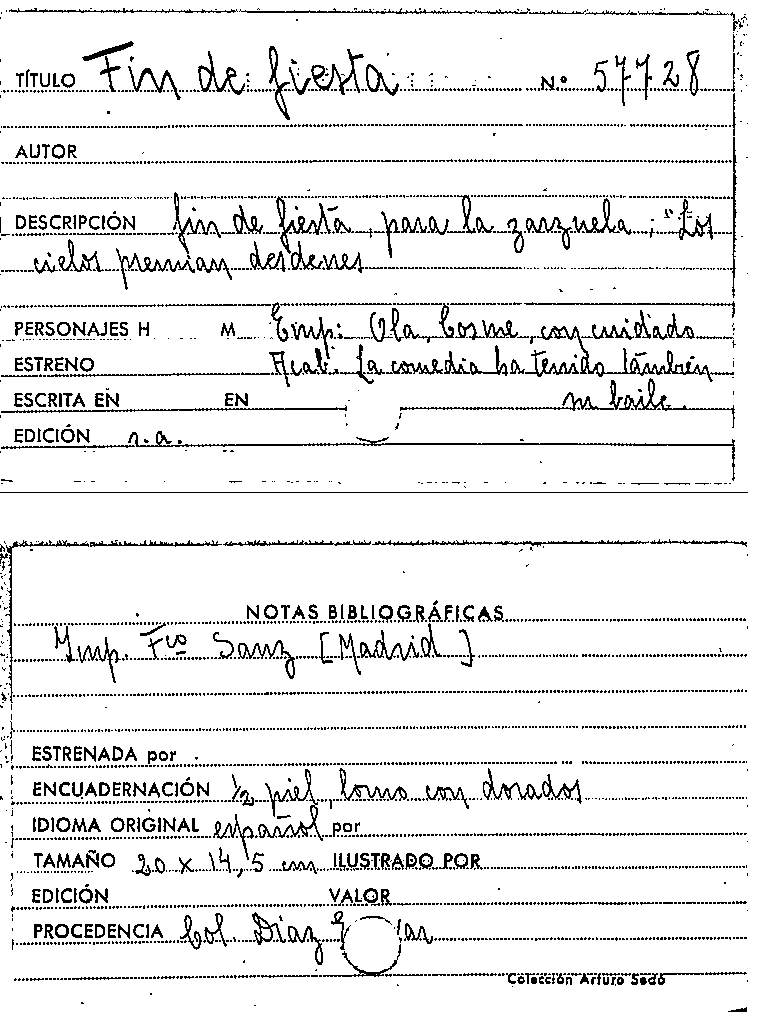 TÍTULO Fin de fiesta N.º 57728
AUTOR
DESCRIPCIÓN fin de fiesta, para la zarzuela: "Los
cielos premian desdenes
PERSONAJES H M Emp: Ola, Cosme, con cuidado
ESTRENO Acab: La comedia ha tenido también
ESCRITA EN EN su baile.
EDICIÓN s.a.
NOTAS BIBLIOGRÁFICAS
Imp. Fco Sanz [Madrid]
ESTRENADA por
ENCUADERNACIÓN ½ piel, lomo con dorados
IDIOMA ORIGINAL español por
TAMAÑO 20 x 14,5 cm ILUSTRADO POR
EDICIÓN VALOR
PROCEDENCIA Col. Díaz
Colección Arturo Sedó